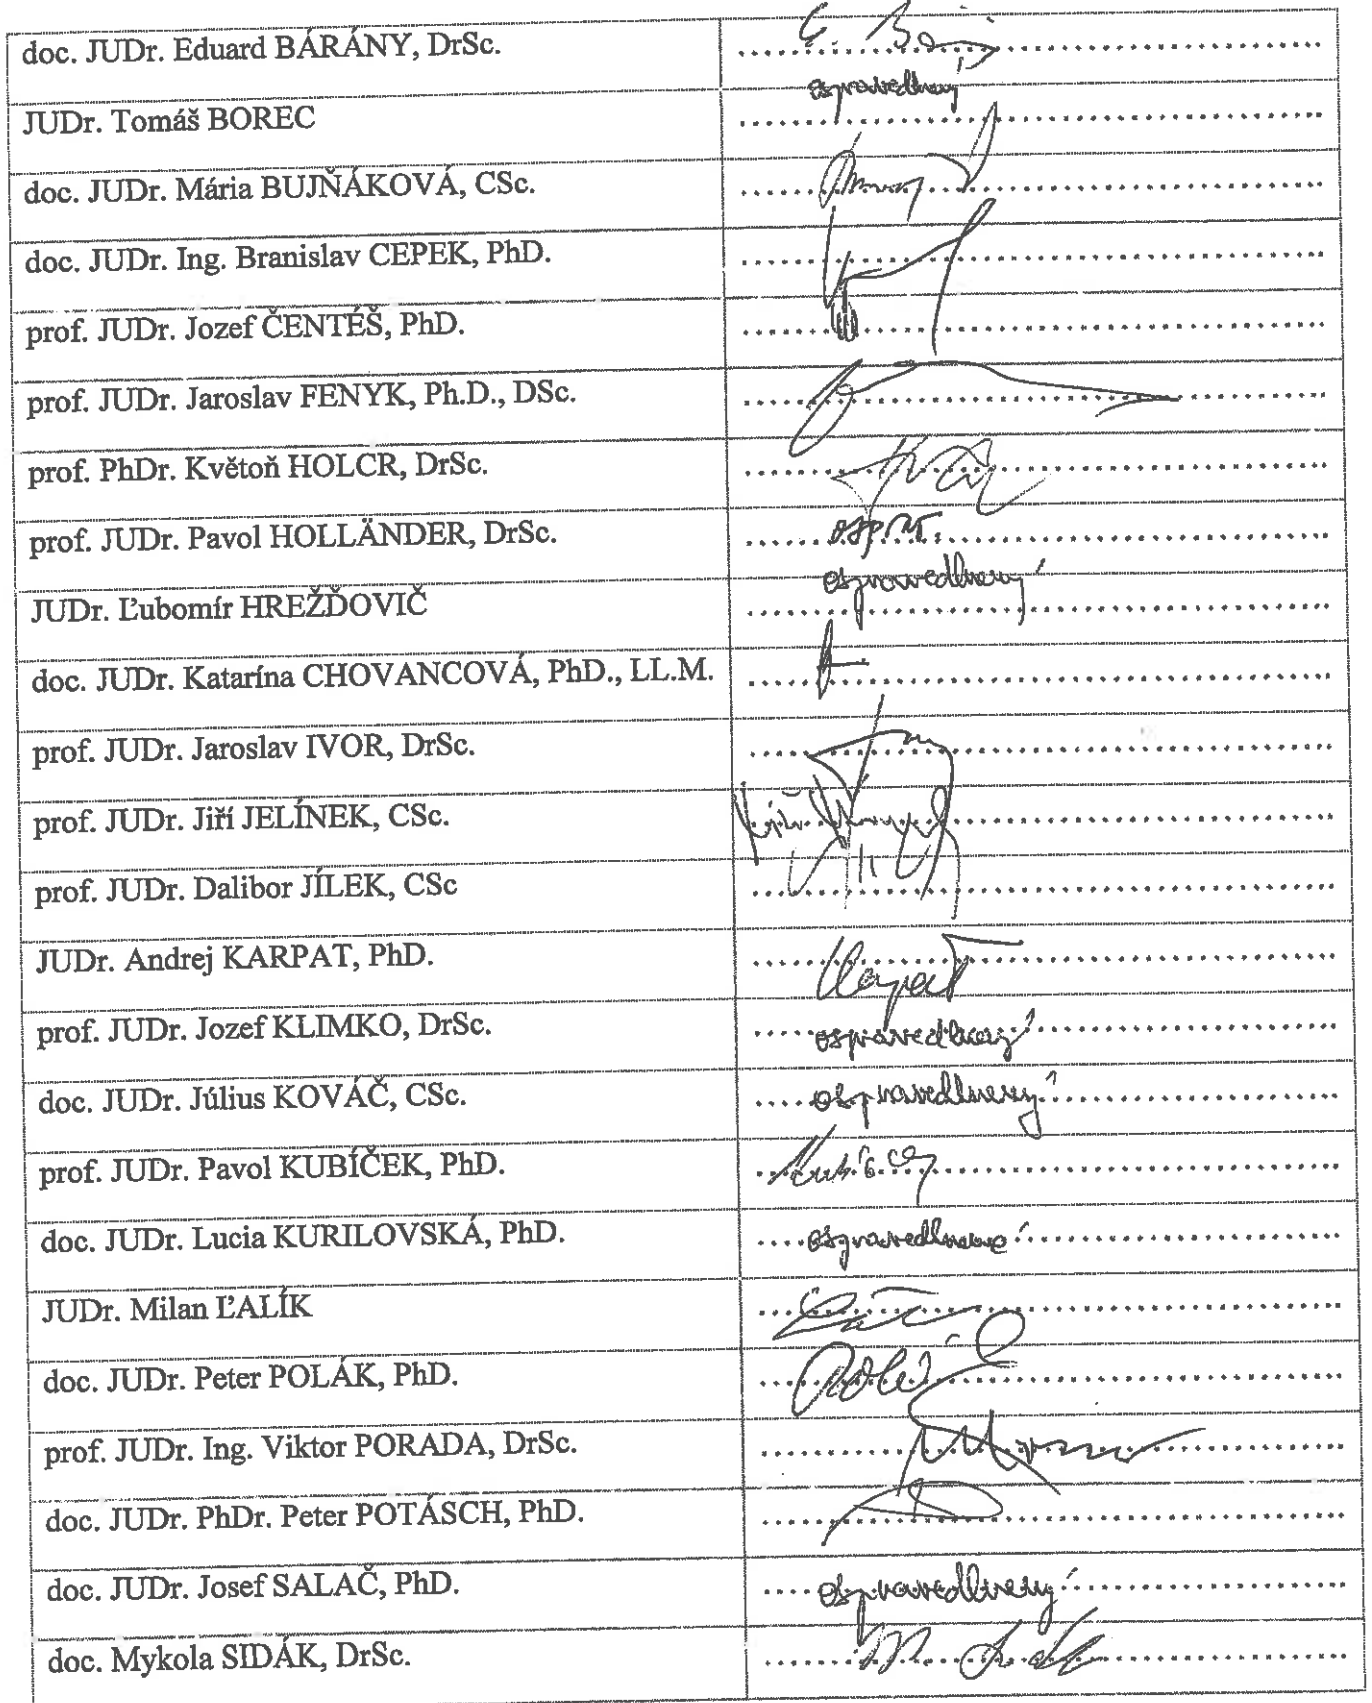 doc. JUDr. Eduard BÁRÁNY, DrSc.
JUDr. Tomáš BOREC ospravedlnený
doc. JUDr. Mária BUJŇÁKOVÁ, CSc.
doc. JUDr. Ing. Branislav CEPEK, PhD.
prof. JUDr. Jozef ČENTÉŠ, PhD.
prof. JUDr. Jaroslav FENYK, Ph.D., DSc.
prof. PhDr. Květoň HOLCR, DrSc.
prof. JUDr. Pavol HOLLÄNDER, DrSc.
JUDr. Ľubomír HREŽĎOVIČ ospravedlnený
doc. JUDr. Katarína CHOVANCOVÁ, PhD., LL.M.
prof. JUDr. Jaroslav IVOR, DrSc.
prof. JUDr. Jiří JELÍNEK, CSc.
prof. JUDr. Dalibor JÍLEK, CSc
JUDr. Andrej KARPAT, PhD. Karpat
prof. JUDr. Jozef KLIMKO, DrSc. ospravedlnený
doc. JUDr. Július KOVÁČ, CSc. ospravedlnený
prof. JUDr. Pavol KUBÍČEK, PhD.
doc. JUDr. Lucia KURILOVSKÁ, PhD. ospravedlnené
JUDr. Milan ĽALÍK
doc. JUDr. Peter POLÁK, PhD.
prof. JUDr. Ing. Viktor PORADA, DrSc.
doc. JUDr. PhDr. Peter POTÁSCH, PhD.
doc. JUDr. Josef SALAČ, PhD. ospravedlnený
doc. Mykola SIDÁK, DrSc.